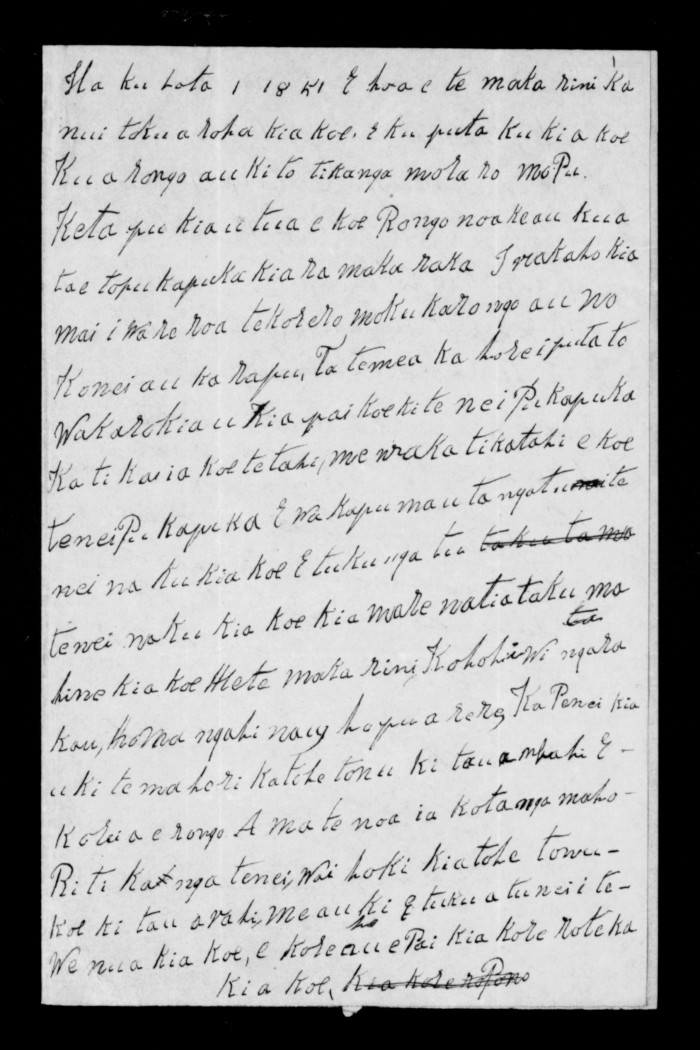 Ha ku Lota 1 1851 E hoa e te maka rini Ka
nui toku a roha kia koe. E ku puta ku kia koe
Ku a rongo au ki to tikanga mo ra ro mo Pu.
Keta pu kia u tua e koe Rongo noa ke au kua
tae to pu kapuka kia ra maka raka I wakaho kia
mai i wa re roa te korero moku ka rongo au No
Konei au ka rapu, Ta temea ka hore i puta to
Wakaro kia u Kia pai koe ki te nei Pu kapuka
Ka ti ka ia koe te tahi, me waka tika tahi e koe
tenei Pu kapuka E wa kapu mau ta nga tu te
nei na ku kia koe E tuku nga tu taku ta ma
tenei naku kia koe kia mare natia taku ma
hine kia koe Hete maka rini, Kohohi Wi ngara ta
kau, homa ngahi nau, hapu a rere, Ka Penei kia
u ki te ma hori ka tohe tonu ki tau a wahi E -
Korua e rongo A ma te noa ia ko ta nga maho -
Ri ti ka nga tenei, Wai hoki kia tohe tonu -
koe ki tau a rahi, me au ki E tuku a tu nei i te -
We nua kia koe, e kore ho au e Pai kia kore ro teka
kia koe, Kia kore ro Pono